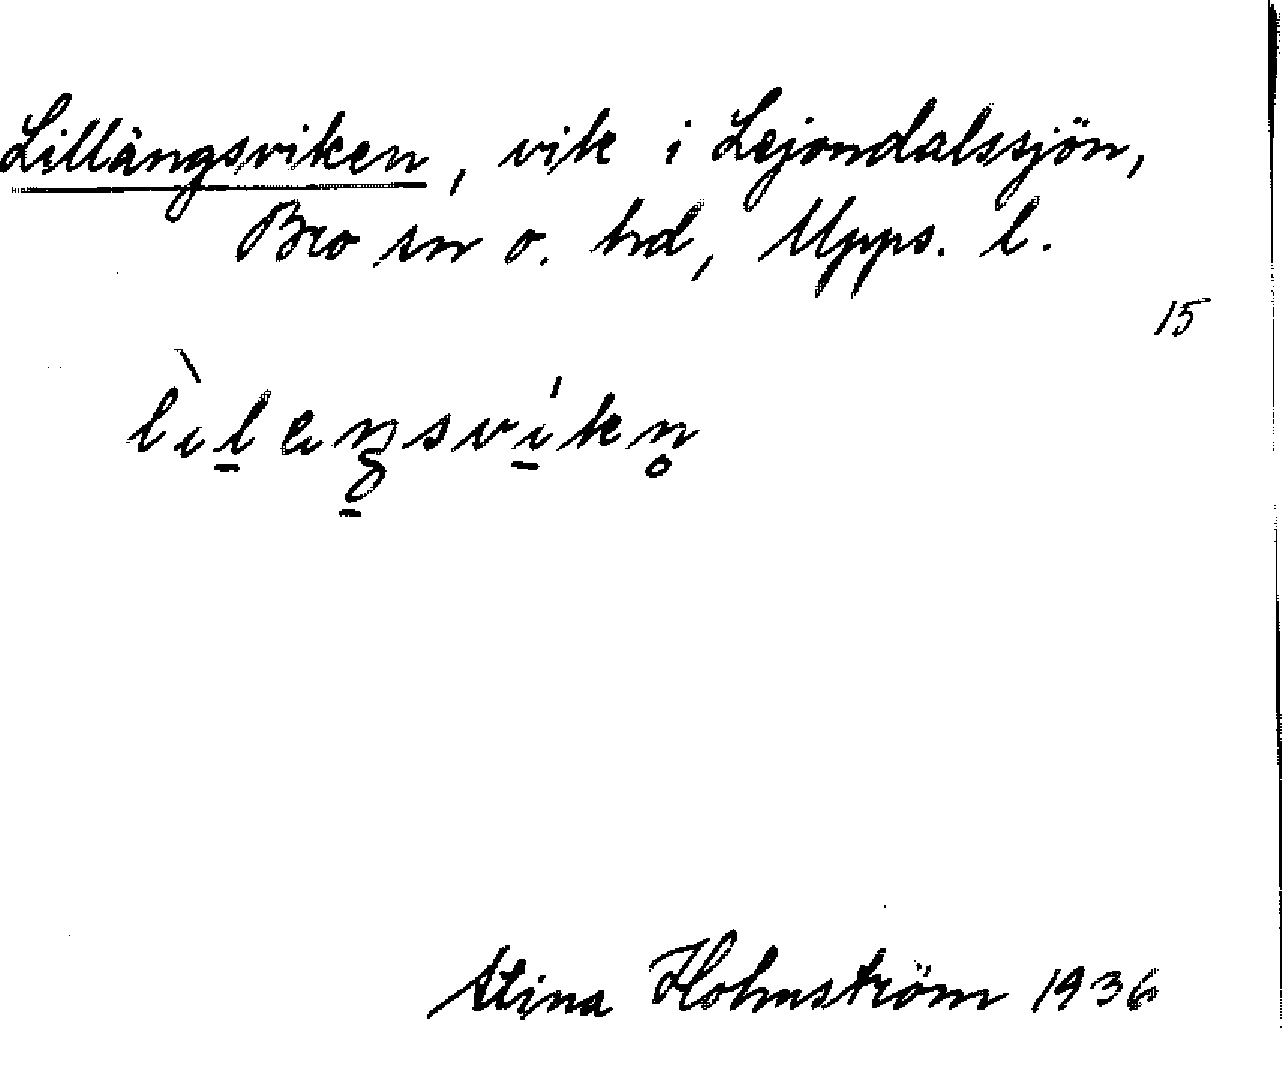 Lillängsviken, vik i Lejondalssjön,
Bro sn o. hd, Upps. l.
15
Stina Holmström 1936